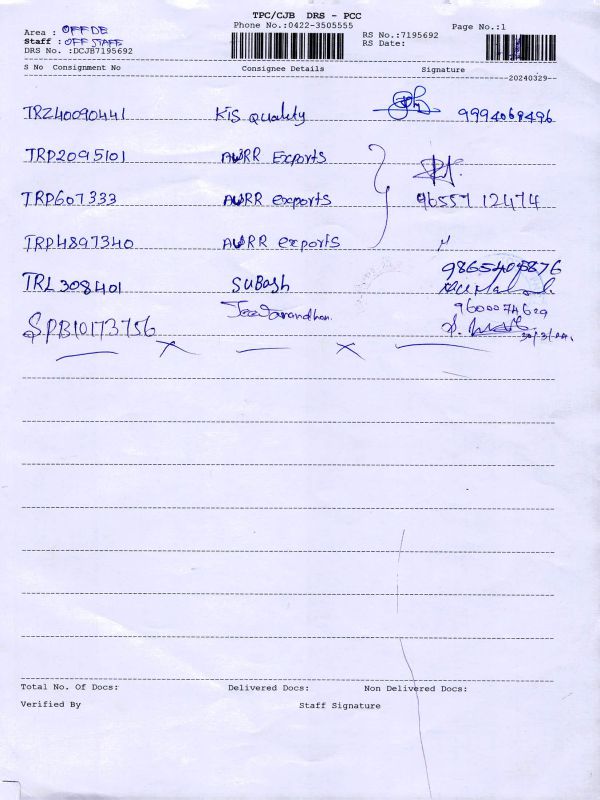 TPC/CJB DRS - PCC
Phone No.:0422-3505555
Page No.:1
Area : OFF DE
Staff : OFF STAFF
DRS No. :DCJB7195692
RS No.:7195692
RS Date:
S No Consignment No Consignee Details Signature
20240329
TRZ40090441 KIS Quality 9994068496
TRP2095101 AWRR Exports
TRP607333 AWRR exports 96557 12474
TRP4897340 AWRR exports "
TRL308401 SUBASH 9865405876
SPB10173756 9600074629
30/3/24.
Total No. Of Docs: Delivered Docs: Non Delivered Docs:
Verified By Staff Signature